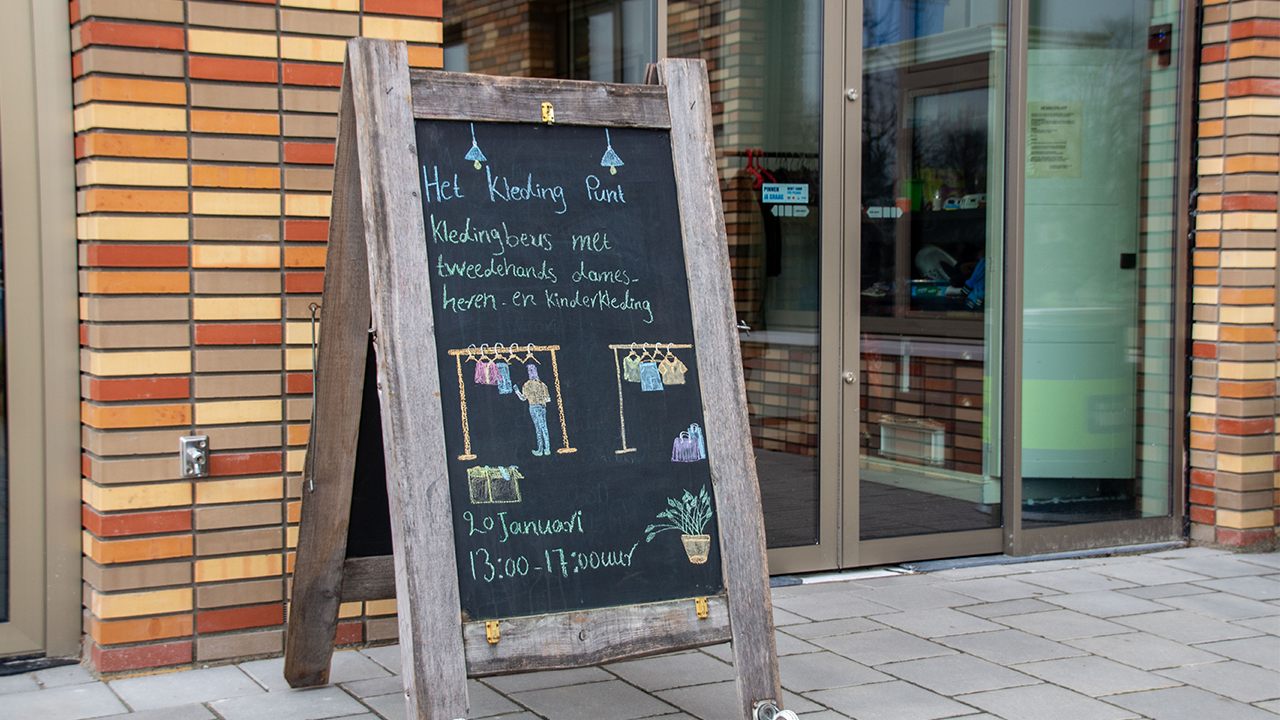 Het Kleding Punt
Kledingbeurs met
tweedehands dames-
heren- en kinderkleding
20 Januari
13:00-17:00 uur
PINNEN
JA GRAAG